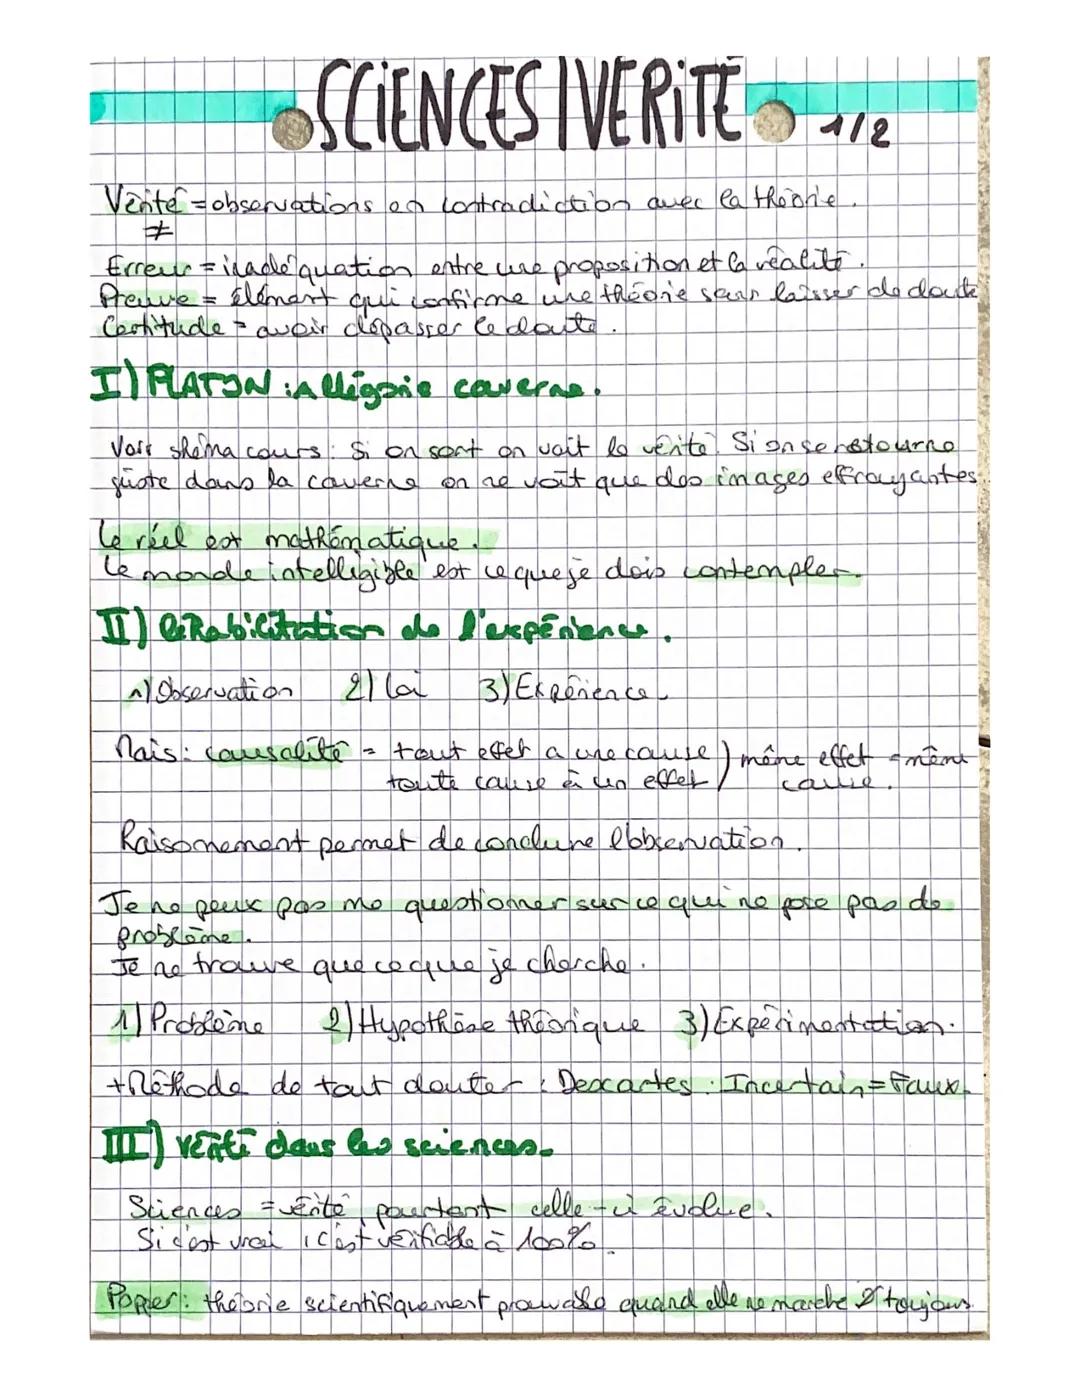 SCIENCES | VERITÉ
1/2
Vérité = observations en contradiction avec la théorie.
≠
Erreur = inadéquation entre une proposition et la réalité.
Preuve = élément qui confirme une théorie sans laisser de doute
Certitude = avoir dépasser le doute.
I) PLATON : Allégorie caverne.
Voir shéma cours : Si on sort on voit la vérité. Si on se retourne
juste dans la caverne on ne voit que des images effrayantes.
Le réel est mathématique.
Le monde intelligible est ce que je dois contempler.
II) Réhabilitation de l'expérience.
1) Observation 2) Loi 3) Expérience.
Mais : causalité = tout effet a une cause ) même effet = même
toute cause à un effet ) cause.
Raisonnement permet de conclure l'observation.
Je ne peux pas me questionner sur ce qui ne pose pas de
problème.
Je ne trouve que ce que je cherche.
1) Problème 2) Hypothèse théorique 3) Expérimentation.
+ Méthode de tout douter : Descartes : Incertain = Faux.
III) Vérité dans les sciences.
Sciences = vérité, pourtant celle-ci évolue.
Si c'est vrai, c'est vérifiable à 100%.
Popper : théorie scientifiquement prouvable quand elle ne marche toujours